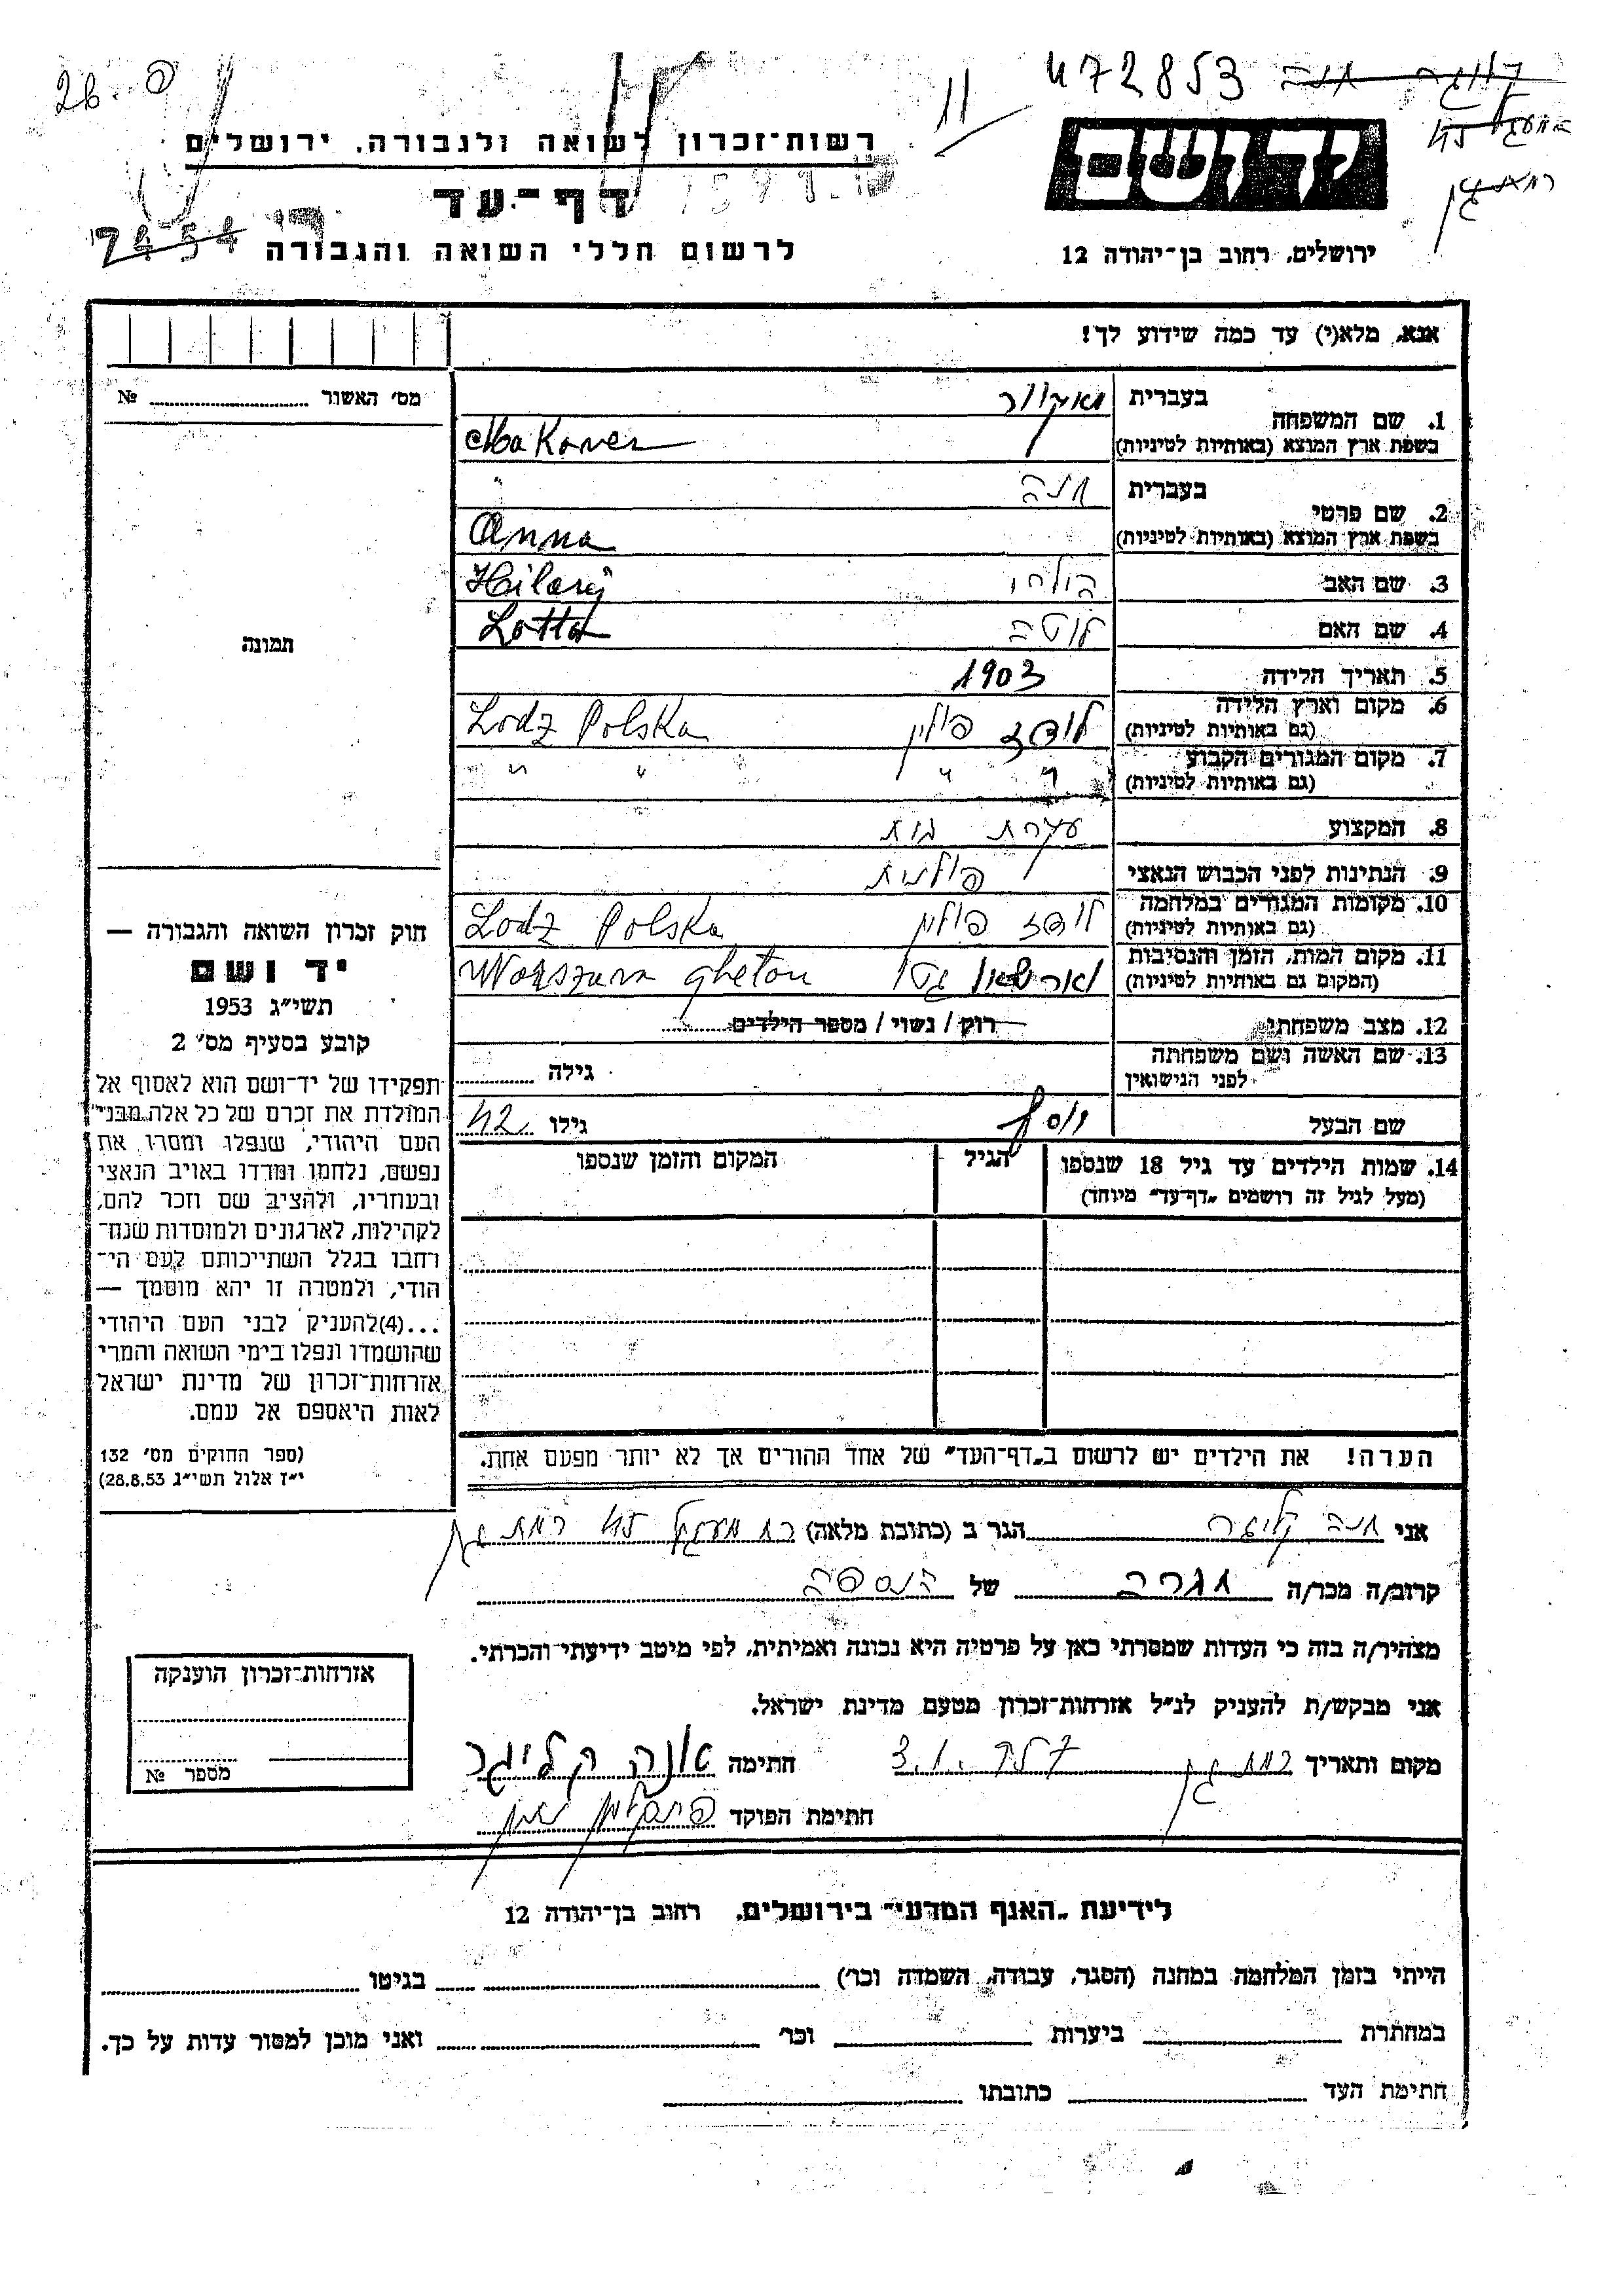 26. פ
472853
רשות־זכרון לשואה ולגבורה, ירושלים
יד ושם
רמת גן
דף־עד
7454
לרשום חללי השואה והגבורה
ירושלים, רחוב בן־יהודה 12
אנא, מלא(י) עד כמה שידוע לך!
מס׳ האשור № ............
1. שם המשפחה
בעברית
מאקוור
בשפת ארץ המוצא (באותיות לטיניות)
Makower
2. שם פרטי
בעברית
חנה
בשפת ארץ המוצא (באותיות לטיניות)
Anna
3. שם האב
Hilary
4. שם האם לוטה Lotta
5. תאריך הלידה 1903
6. מקום וארץ הלידה (גם באותיות לטיניות) לודז פולין Lodz Polska
7. מקום המגורים הקבוע (גם באותיות לטיניות) " " " "
8. המקצוע עקרת בית
9. הנתינות לפני הכבוש הנאצי פולנית
10. מקומות המגורים במלחמה (גם באותיות לטיניות) לודז פולין Lodz Polska
11. מקום המות, הזמן והנסיבות (המקום גם באותיות לטיניות) Warszawa ghetou
12. מצב משפחתי רוק / נשוי / מספר הילדים
13. שם האשה ושם משפחתה לפני הנישואין
גילה
שם הבעל יוסף גילו 42
14. שמות הילדים עד גיל 18 שנספו (מעל לגיל זה רושמים „דף־עד” מיוחד)
הגיל
המקום והזמן שנספו
תמונה
חוק זכרון השואה והגבורה —
יד ושם
תשי״ג 1953
קובע בסעיף מס׳ 2
תפקידו של יד־ושם הוא לאסוף אל
המולדת את זכרם של כל אלה מבני
העם היהודי, שנפלו ומסרו את
נפשם, נלחמו ומרדו באויב הנאצי
ובעוזריו, ולהציב שם וזכר להם,
לקהילות, לארגונים ולמוסדות שנח־
רבו בגלל השתייכותם לעם הי־
הודי, ולמטרה זו יהא מוסמך —
...(4)להעניק לבני העם היהודי
שהושמדו ונפלו בימי השואה והמרי
אזרחות־זכרון של מדינת ישראל
לאות היאספם אל עמם.
(ספר החוקים מס׳ 132
י״ז אלול תשי״ג 28.8.53)
הערה! את הילדים יש לרשום ב„דף־העד” של אחד ההורים אך לא יותר מפעם אחת.
אני חנה קליגר הגר ב (כתובת מלאה) רמת גן
קרוב/ה מכר/ה חברה של הנספה
מצהיר/ה בזה כי העדות שמסרתי כאן על פרטיה היא נכונה ואמיתית, לפי מיטב ידיעתי והכרתי.
אני מבקש/ת להעניק לנ״ל אזרחות־זכרון מטעם מדינת ישראל.
מקום ותאריך רמת גן חתימה קליגר
חתימת הפוקד
אזרחות־זכרון הוענקה
מספר №
לידיעת „האגף המדעי” בירושלים, רחוב בן־יהודה 12
הייתי בזמן המלחמה במחנה (הסגר, עבודה, השמדה וכו׳) ............ בגיטו ............
במחתרת ............ ביערות ............ וכו׳ ............ ואני מוכן למסור עדות על כך.
חתימת העד ............ כתובתו ............